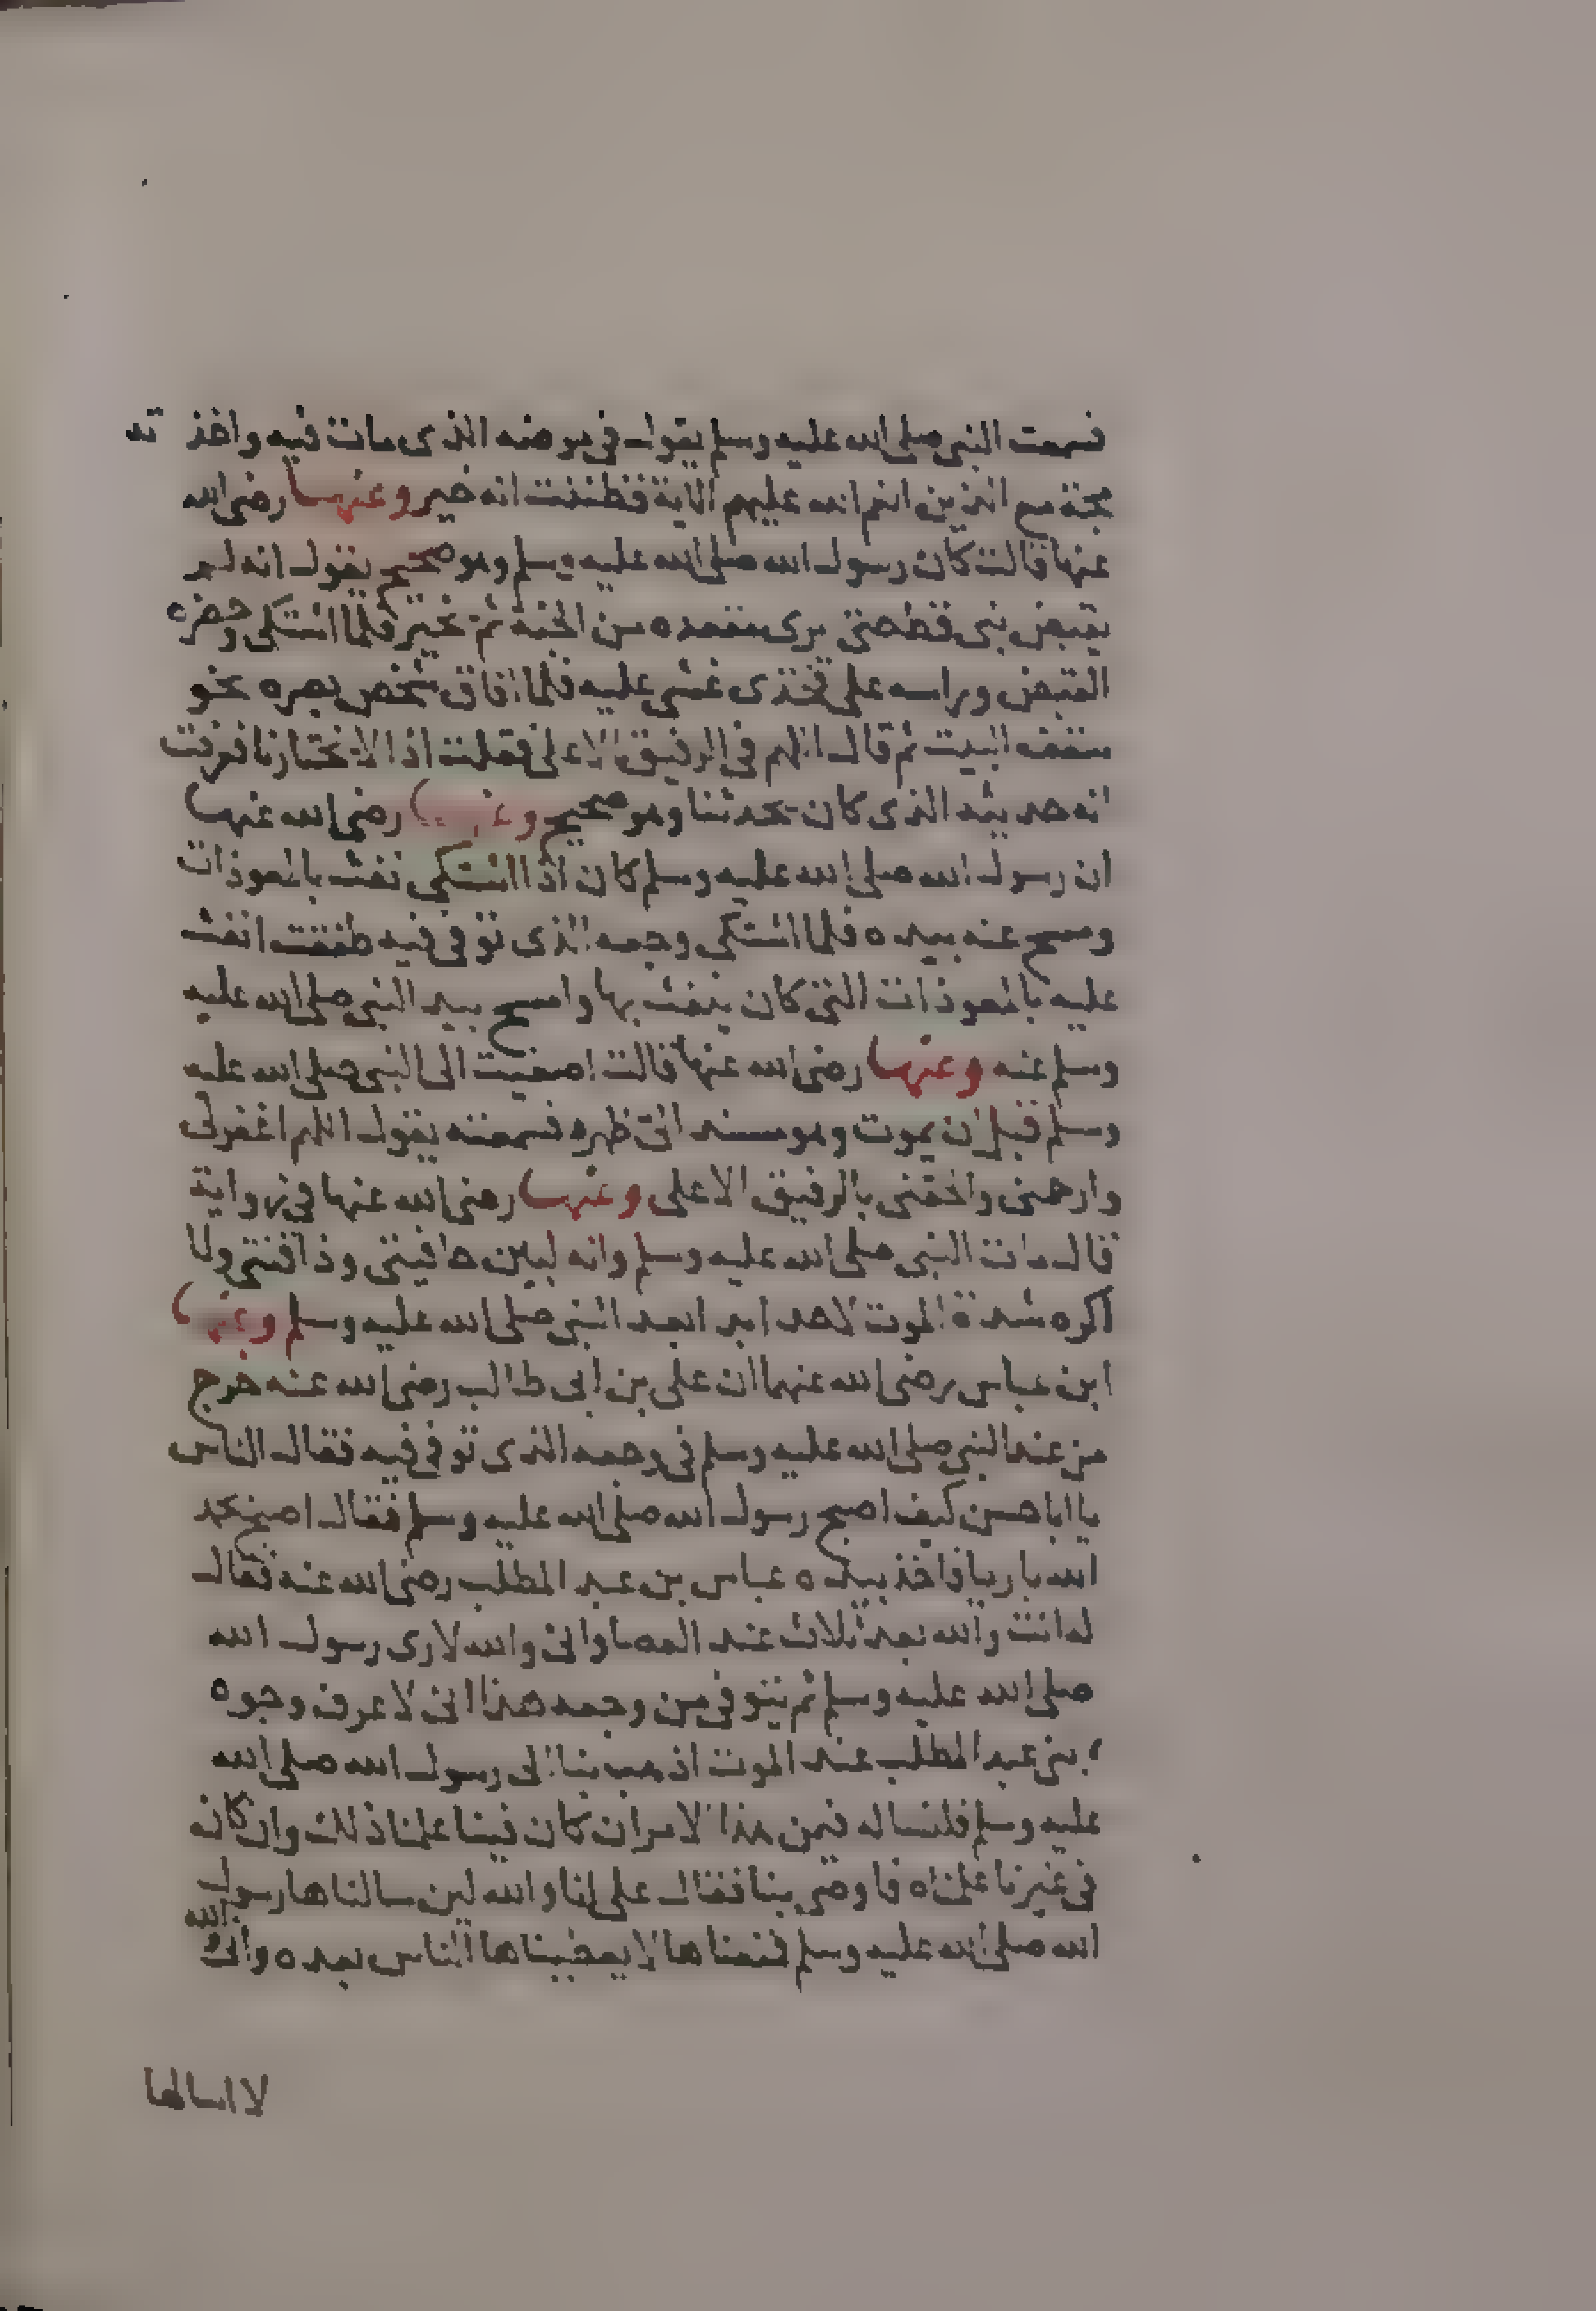 فسمعت النبي صلى الله عليه وسلم يقول في مرضه الذي مات فيه واخذته
بحة مع الذين انعم الله عليهم الاية فظننت انه خير وعنها رضي الله
عنها قالت كان رسول الله صلى الله عليه وسلم وهو صحيح يقول انه لم
يقبض نبي قط حتى يرى مقعده من الجنة ثم يخير فلما اشتكى وحضره
القبض وراسه على فخذي غشي عليه فلما افاق شخص بصره نحو
سقف البيت ثم قال اللهم في الرفيق الاعلى فقلت اذا لا يختارنا فعرفت
انه حديثه الذي كان يحدثنا وهو صحيح وعنها رضي الله عنها
ان رسول الله صلى الله عليه وسلم كان اذا اشتكى نفث بالمعوذات
ومسح عنه بيده فلما اشتكى وجعه الذي توفي فيه طفقت انفث
عليه بالمعوذات التي كان ينفث بها وامسح بيد النبي صلى الله عليه
وسلم عنه وعنها رضي الله عنها قالت اصغيت الى النبي صلى الله عليه
وسلم قبل ان يموت وهو مسند الى ظهره فسمعته يقول اللهم اغفر لي
وارحمني والحقني بالرفيق الاعلى وعنها رضي الله عنها في رواية
قال مات النبي صلى الله عليه وسلم وانه لبين حاقنتي وذاقنتي ولا
اكره شدة الموت لاحد ابد ابعد النبي صلى الله عليه وسلم وعنها
ابن عباس رضي الله عنهما ان علي بن ابي طالب رضي الله عنه خرج
من عند النبي صلى الله عليه وسلم في وجعه الذي توفي فيه فقال الناس
يا ابا حسن كيف اصبح رسول الله صلى الله عليه وسلم فقال اصبح بحمد
الله باريا فاخذ بيده عباس بن عبد المطلب رضي الله عنه فقال
له انت والله بعد ثلاث عند العصا واني والله لارى رسول الله
صلى الله عليه وسلم ثم يتوفى من وجعه هذا اني لاعرف وجوه
بني عبد المطلب عند الموت اذهب بنا الى رسول الله صلى الله
عليه وسلم فلنساله فيمن هذا الامر ان كان فينا علمنا ذلك وان كانه
في غيرنا علمناه فاوصى بنا فقال علي انا والله لين سالناها رسول الله
الله صلى الله عليه وسلم فمنعناها لا يعطيناها الناس بعده واني
لا اسالها